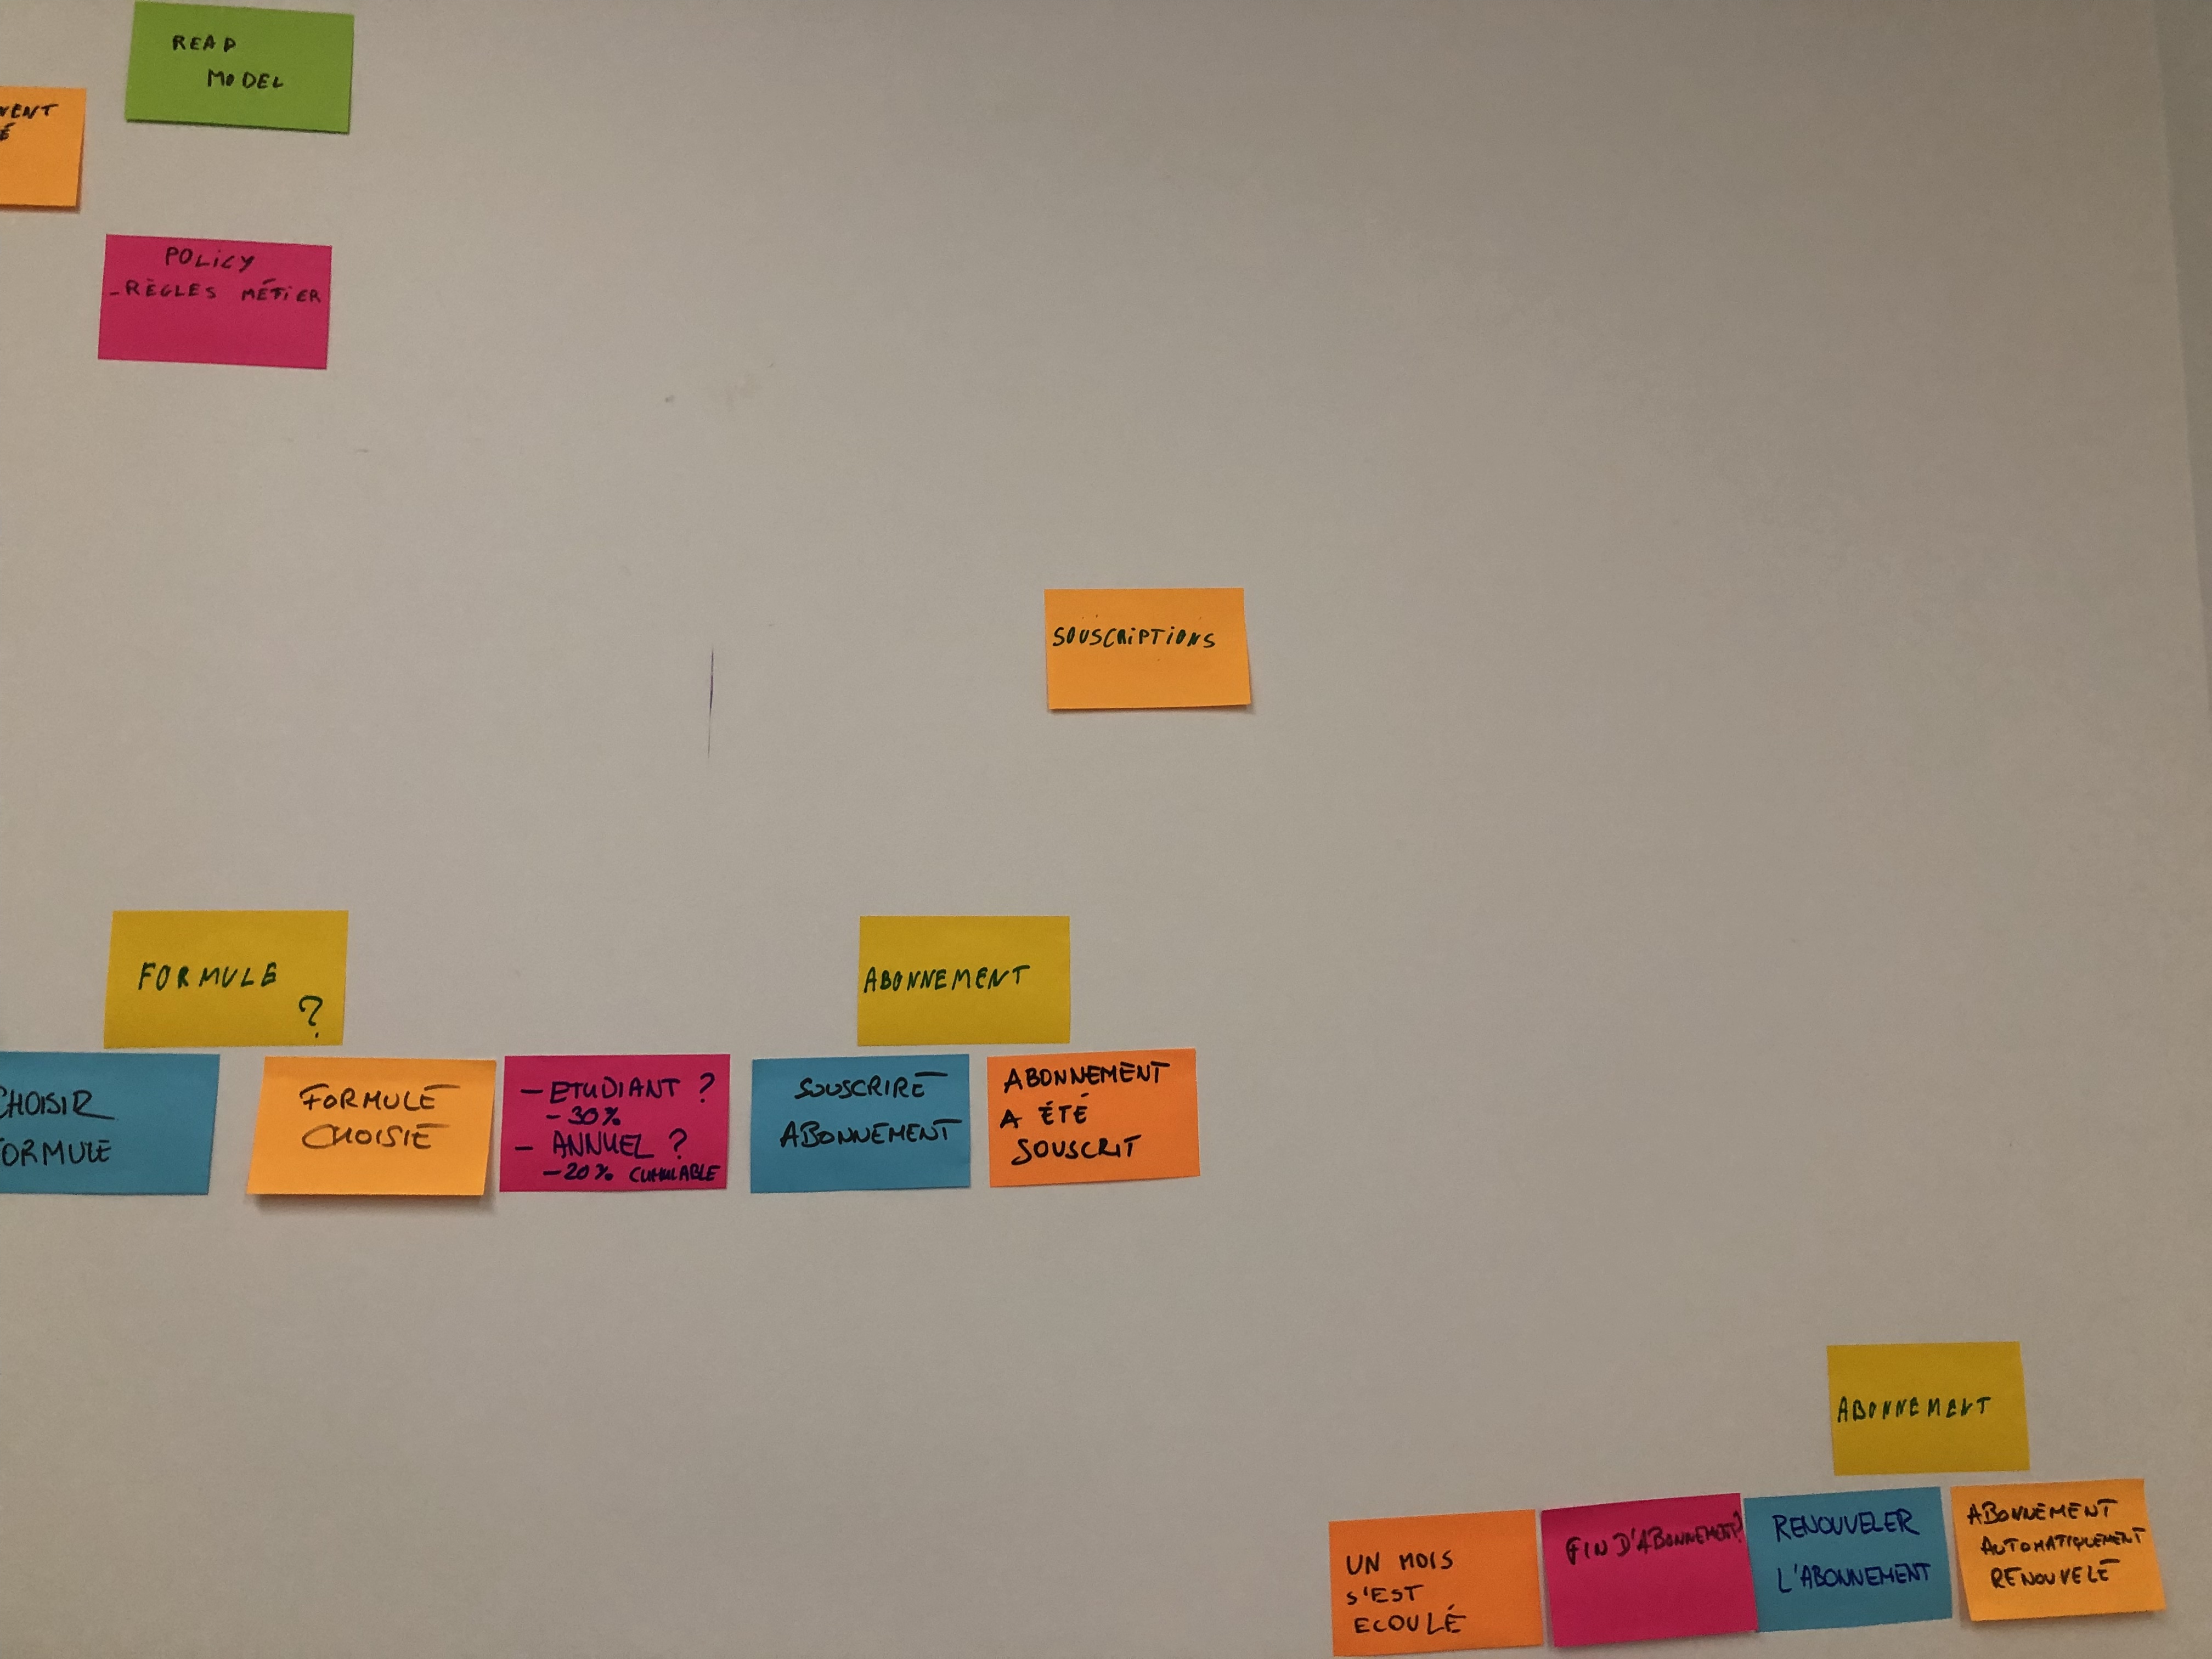 READ
MODEL
POLICY
-RÈGLES MÉTIER
SOUSCRIPTIONS
FORMULE
?
ABONNEMENT
CHOISIR
FORMULE
FORMULE
CHOISIE
- ETUDIANT ?
- 30%
- ANNUEL ?
- 20% CUMULABLE
SOUSCRIRE
ABONNEMENT
ABONNEMENT
A ÉTÉ
SOUSCRIT
ABONNEMENT
UN MOIS
S'EST
ECOULÉ
FIN D'ABONNEMENT?
RENOUVELER
L'ABONNEMENT
ABONNEMENT
AUTOMATIQUEMENT
RENOUVELÉ